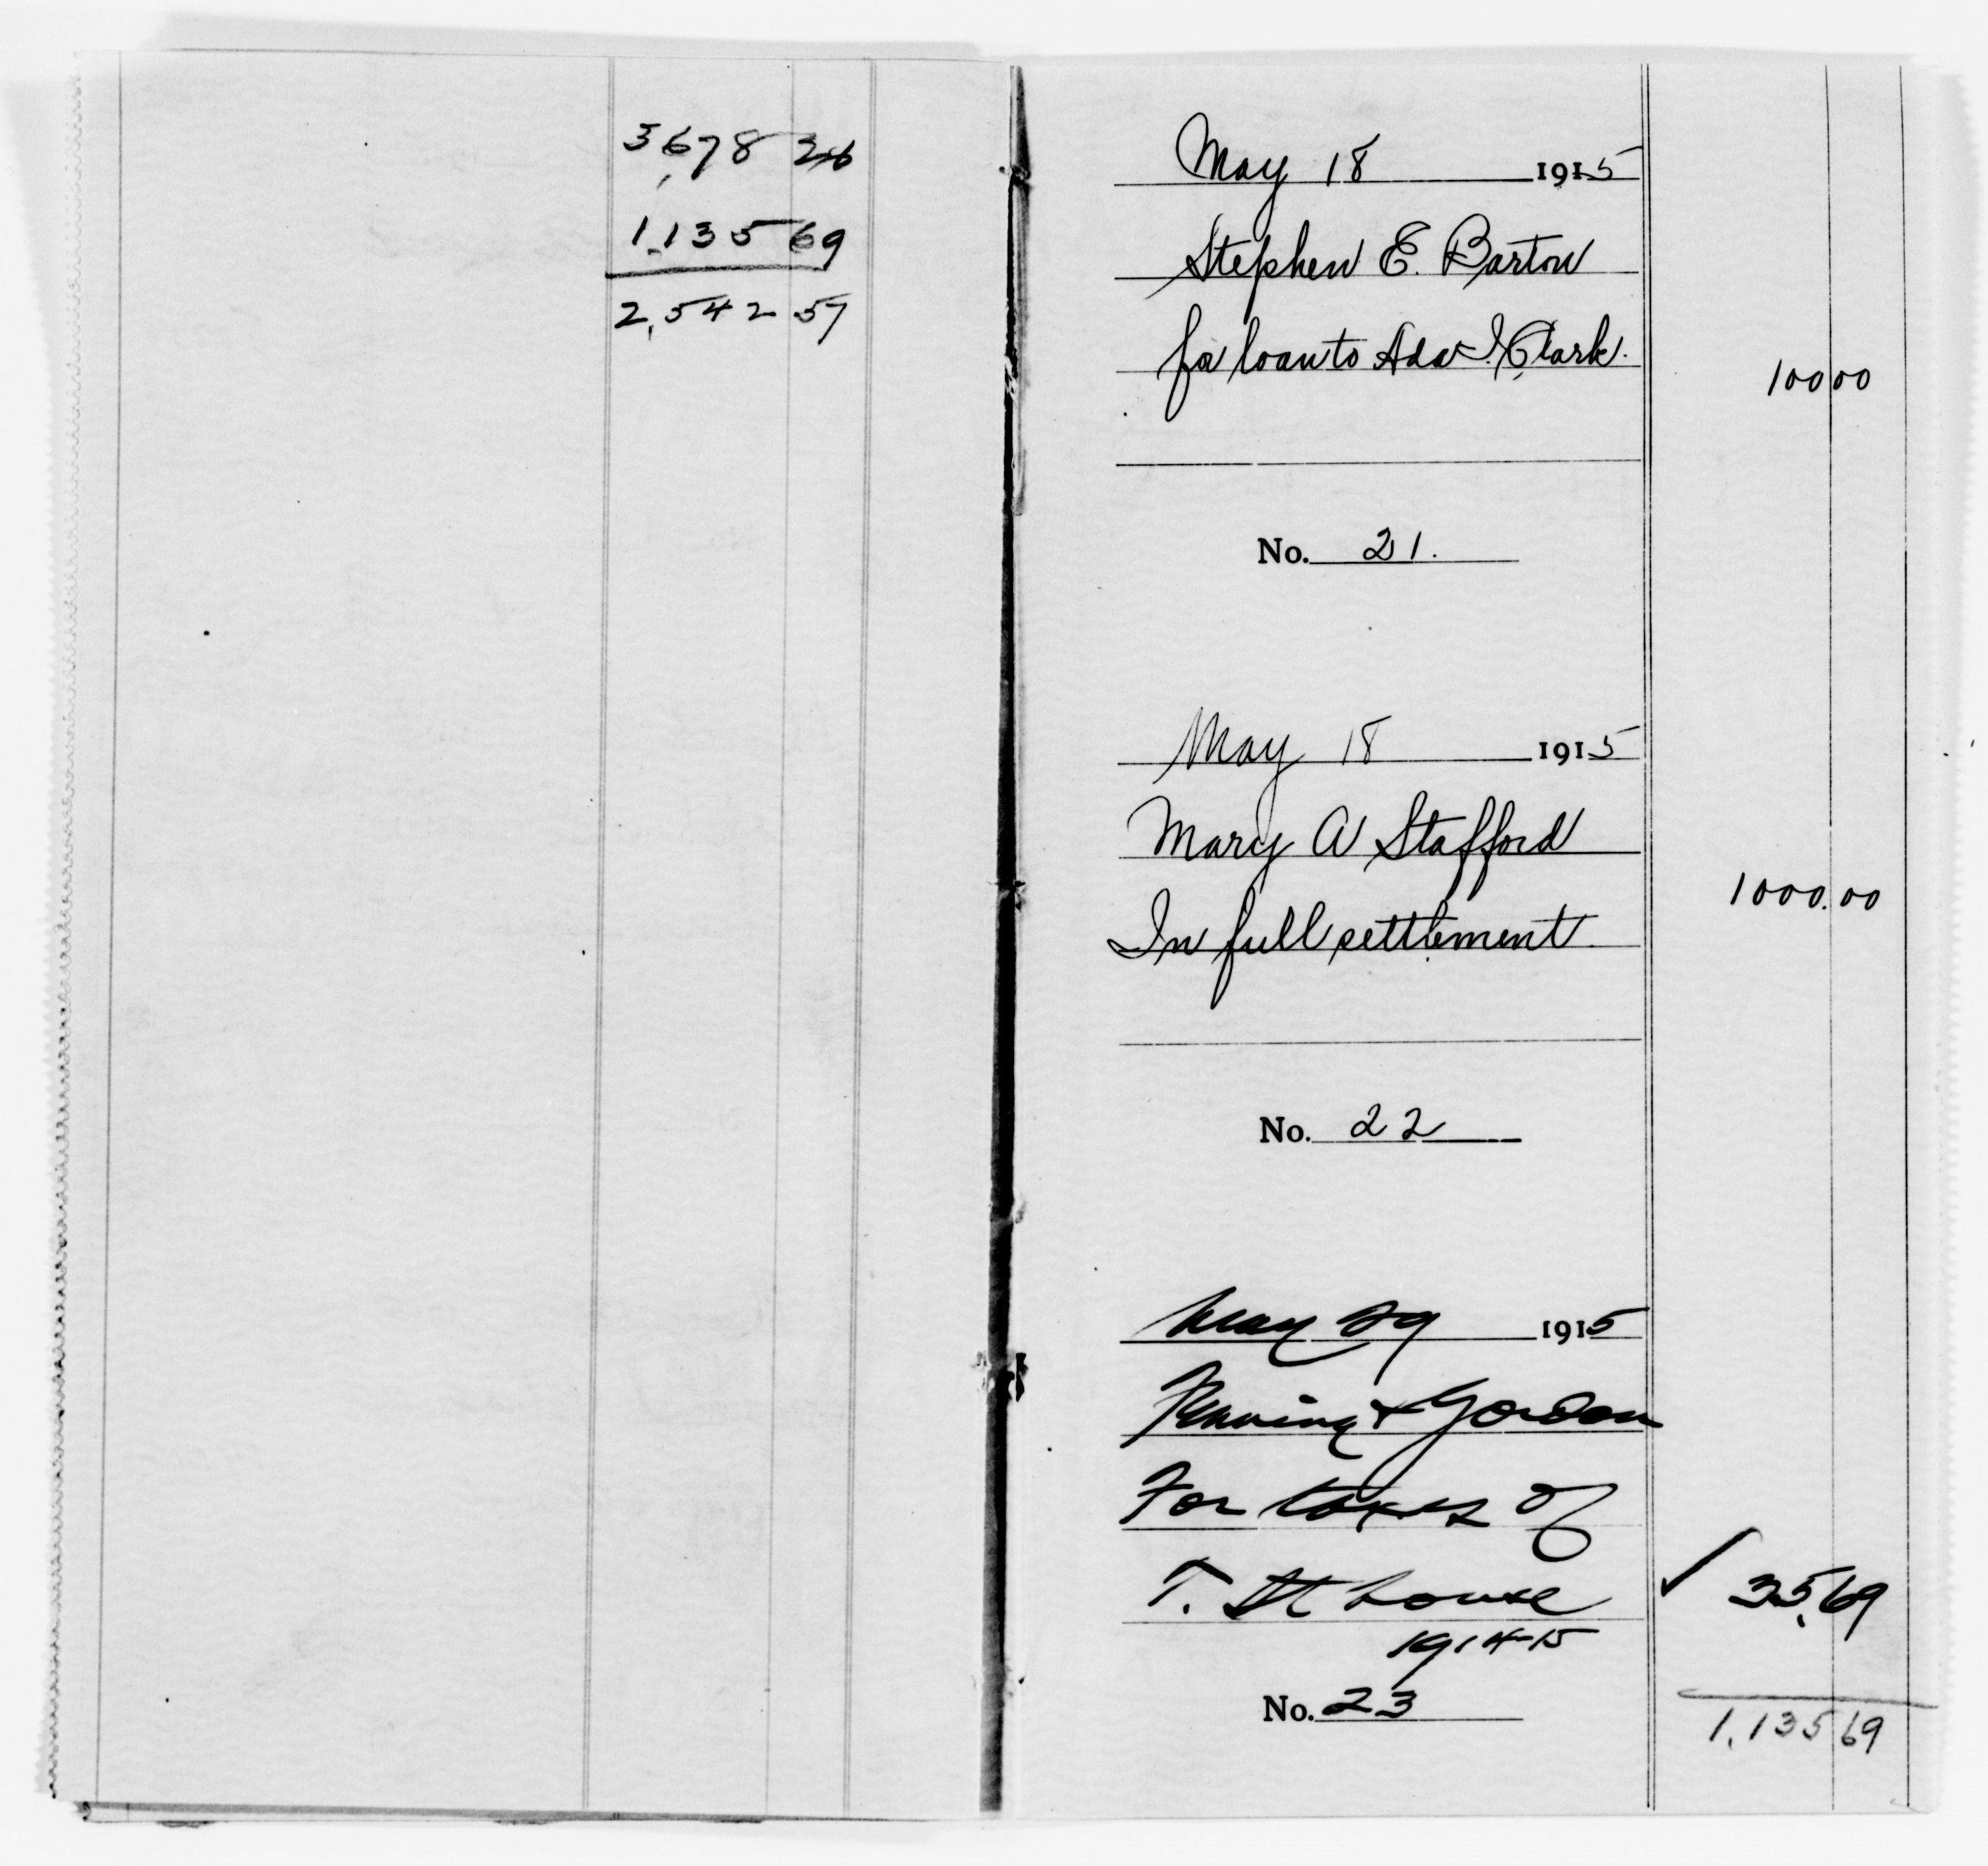 3,678 26
1,135 69
2,542 57
May 18 1915
Stephen E. Barton
for loan to Ada I. Clark.
100 00
No. 21.
May 18 1915
Mary A Stafford
1000.00
In full settlement
No. 22
May 29 1915
& Gordon
For taxes of
T. St house
35.69
1914-15
No. 23
1,135 69